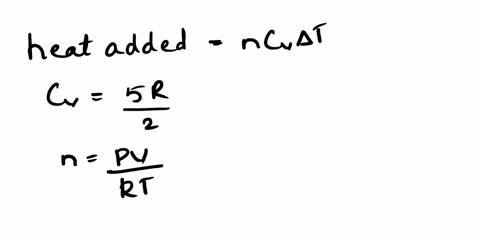 heat added = nCvΔT
Cv = 5R/2
n = PV/RT